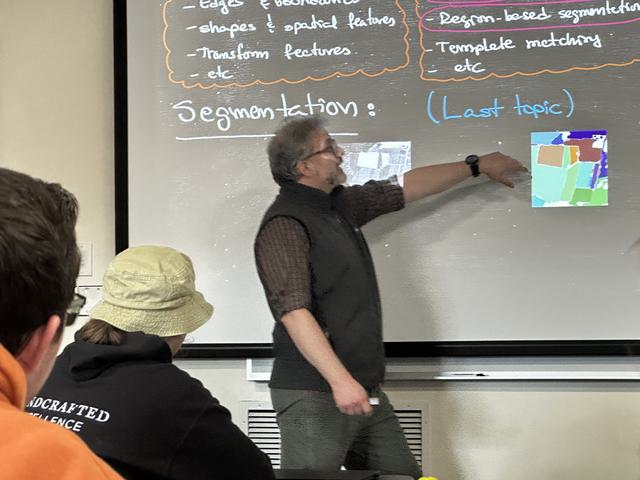 - Edges & boundaries
- shapes & spatial features
- Transform features
- etc
- Region-based segmentation
- Template matching
- etc
Segmentation: (Last topic)
NDCRAFTED
ELLENCE